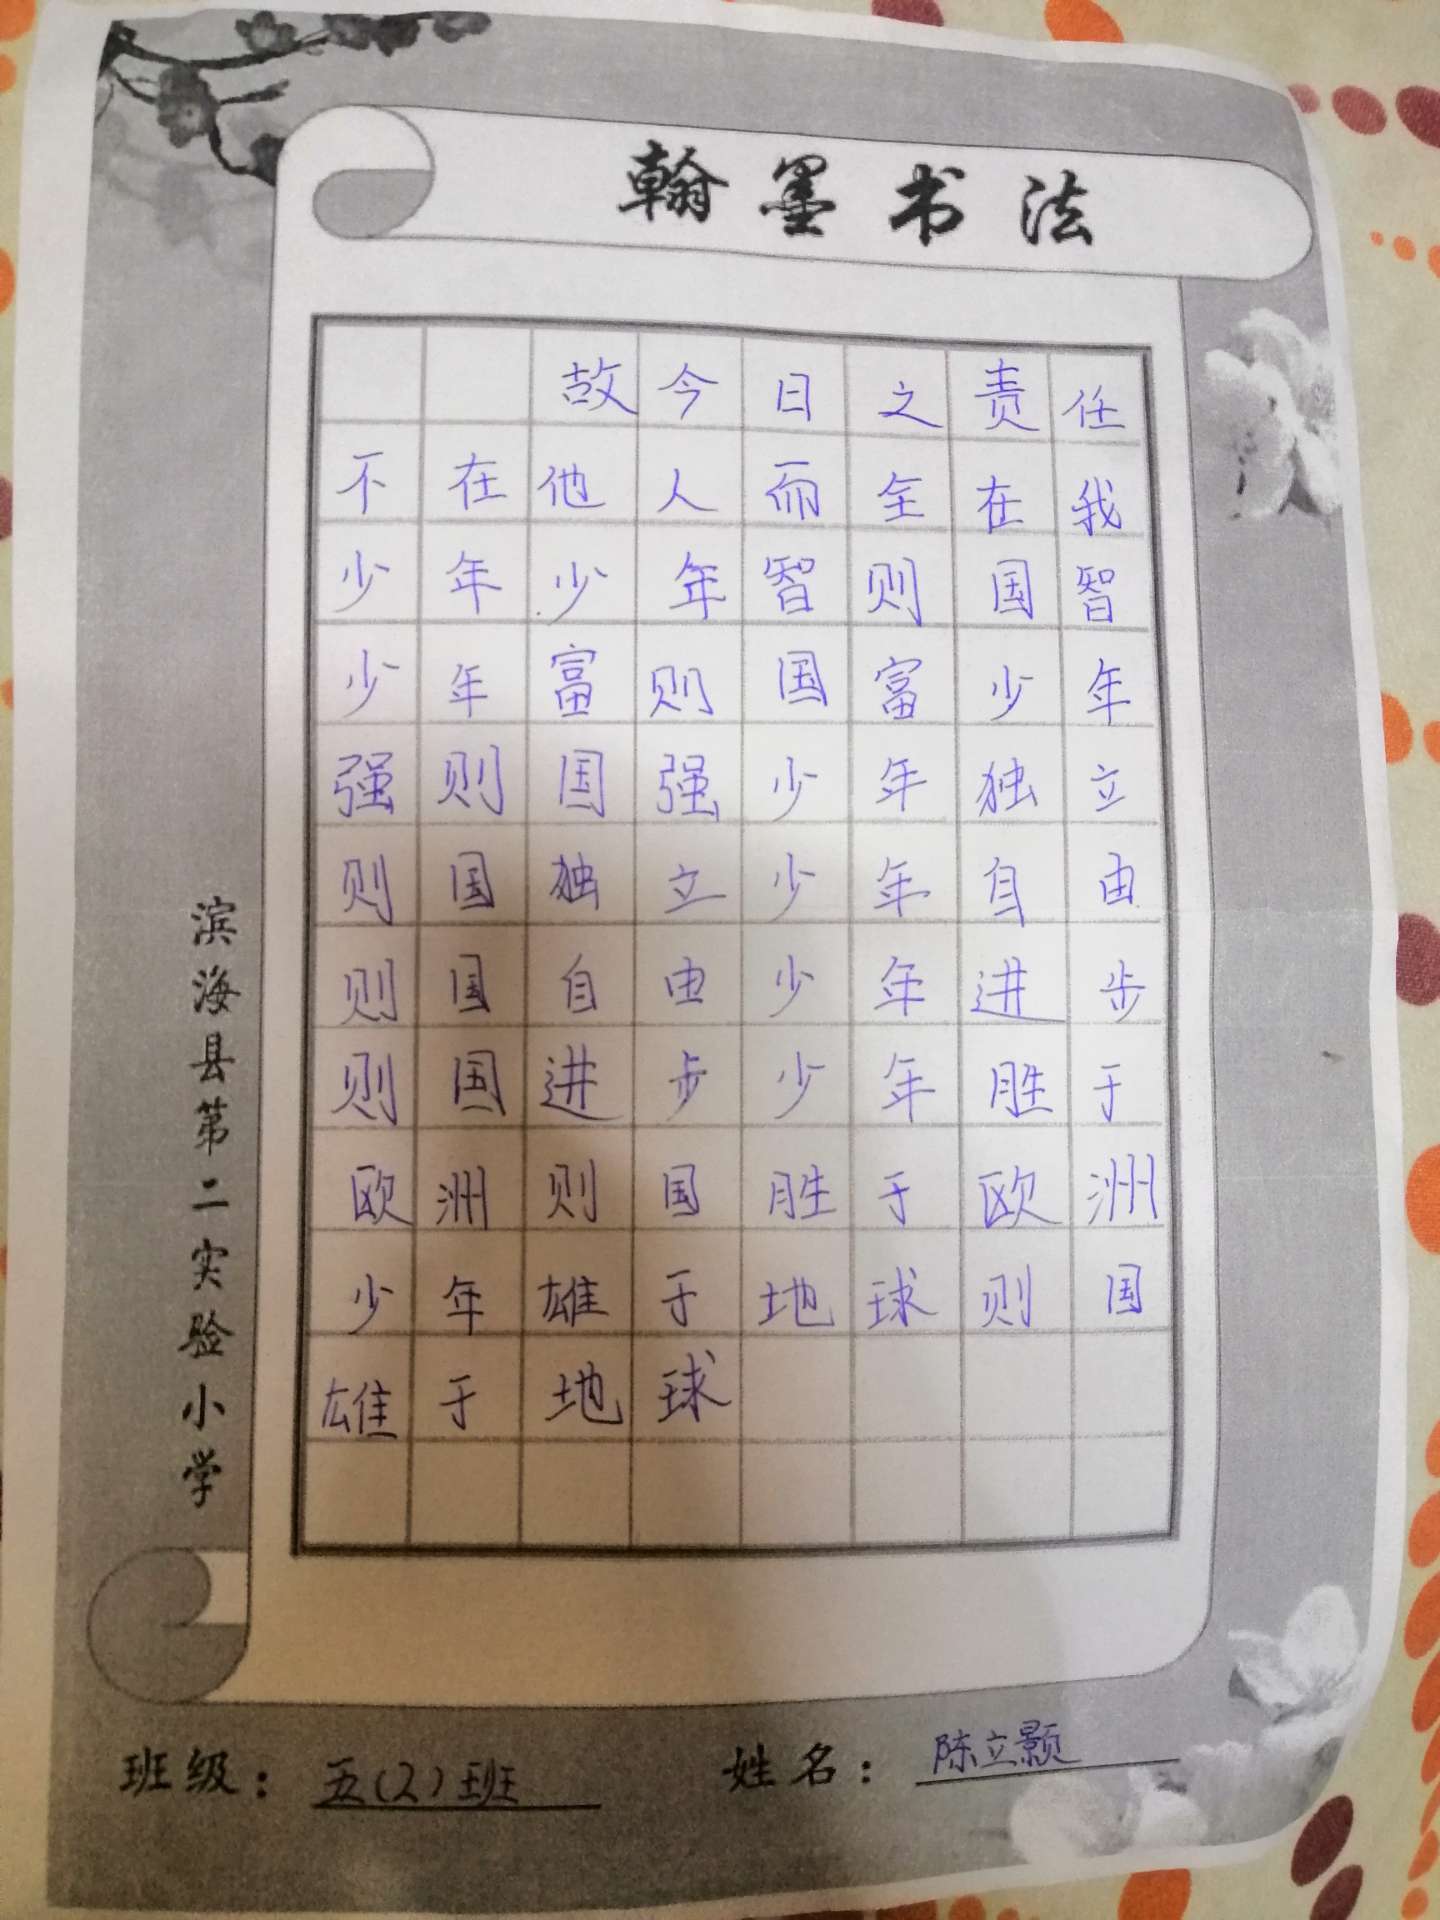 翰墨书法
故今日之责任
不在他人而全在我
少年少年智则国智
少年富则国富少年
强则国强少年独立
则国独立少年自由
则国自由少年进步
则国进步少年胜于
欧洲则国胜于欧洲
少年雄于地球则国
雄于地球
滨海县第二实验小学
班级：五(2)班
姓名：陈立颢